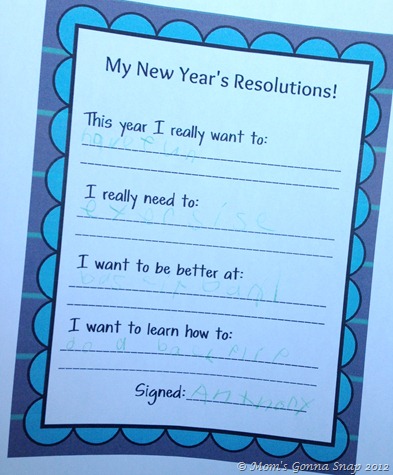 My New Year's Resolutions!
This year I really want to:
have fun
I really need to:
I want to be better at:
I want to learn how to:
do a
Signed: Anthony
© Mom's Gonna Snap 2012